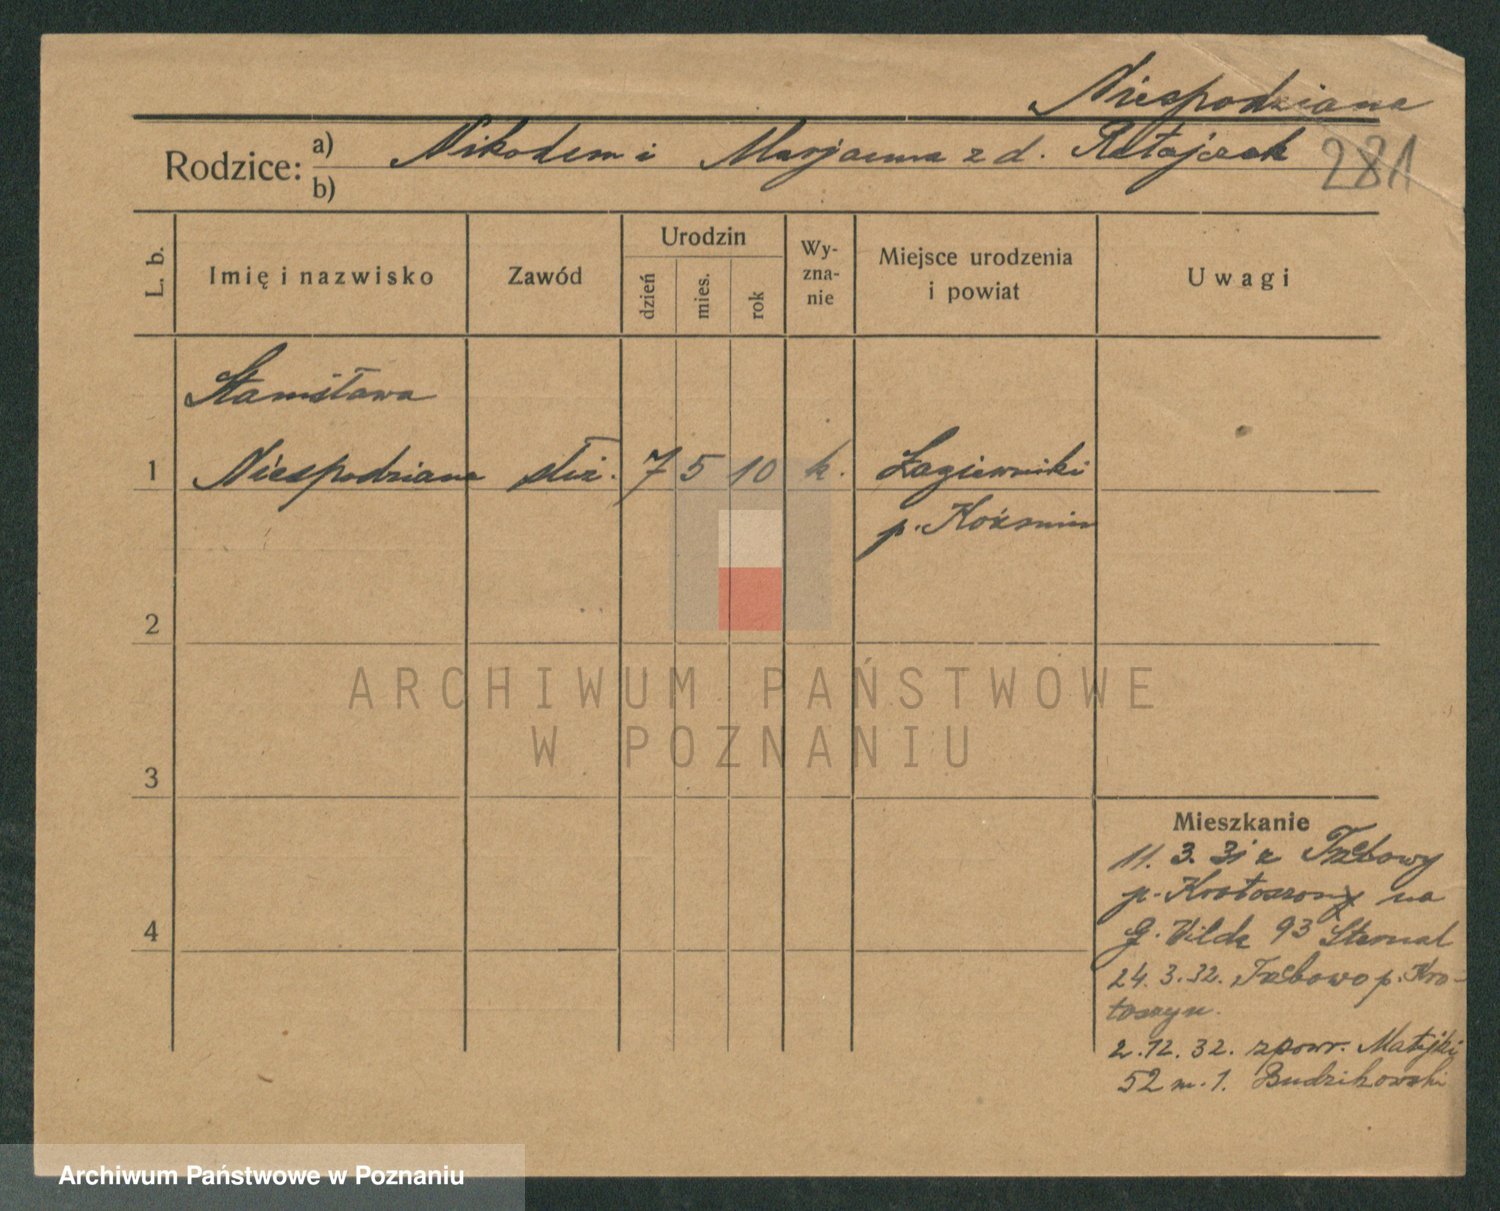 Niespodziana
Rodzice: a) Nikodem i Marjanna z d. Ratajczak 281
b)
L. b. Imię i nazwisko Zawód Urodzin dzień mies. rok Wy-zna-nie Miejsce urodzenia i powiat Uwagi
Stanisława
1 Niespodziana służ. 7 5 10 k. Łagiewniki
p. Koźmin
2
ARCHIWUM PAŃSTWOWE
W POZNANIU
3
Mieszkanie
11. 3. 31 z Trzebowy
p. Krotoszyn na
4
G. Wilda 93 Sternal
24. 3. 32. Trzebowo p. Kro-
toszyn.
2. 12. 32. zpowr. Matejki
52 m. 1. Budzikowski
Archiwum Państwowe w Poznaniu